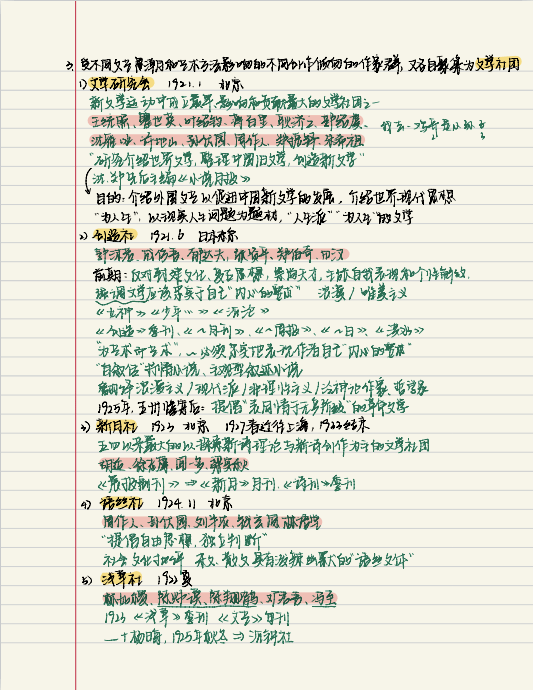 3. 受不同文艺思潮和艺术方法影响的不同创作倾向的作家群，又各自聚集为文学社团
1) 文学研究会 1921.1 北京
新文学运动中成立最早、影响和贡献最大的文学社团之一
王统照、瞿世英、叶绍钧、蒋百里、耿济之、郭绍虞、
沈雁冰、许地山、孙伏园、周作人、郑振铎、朱希祖
"研究介绍世界文学，整理中国旧文学，创造新文学"
沈、郑先后主编《小说月报》
目的：介绍外国文艺以促进中国新文学的发展，介绍世界现代思想
"为人生"，以现实人生问题为题材，"人生派" "为人生"的文学
2) 创造社 1921.6 日本东京
郭沫若、成仿吾、郁达夫、张资平、郑伯奇、田汉
前期：反对封建文化、复古思想，崇尚天才，主张自我表现和个性解放，
强调文学应该忠实于自己"内心的要求" 浪漫/唯美主义
《女神》《少年…》《沉沦》
《创造》季刊、《～月刊》、《～周报》、《～日》、《洪水》
"为艺术而艺术"，～必须忠实地表现作者自己"内心的要求"
"自叙传"抒情小说、主观型叙述小说
翻译浪漫主义/现代派/非理性主义/泛神论作家、哲学家
1925年，五卅惨案后：提倡"表同情于无产阶级"的革命文学
3) 新月社 1923 北京 1927看迁往上海，
五四以来最大的以探索新诗理论与新诗创作为主的文学社团
胡适、徐志摩、闻一多、梁实秋
《晨报副刊》⇒《新月》月刊、《诗刊》季刊
4) 语丝社 1924.11 北京
周作人、孙伏园、刘半农、钱玄同、林语堂
"提倡自由思想，独立判断"
社会文化批评 杂文、散文 具有泼辣幽默的"语丝文体"
5) 浅草社 1922夏
林如稷、陈炜谟、陈翔鹤、邓君吾、冯至
1923 《浅草》季刊 《文艺》旬刊
—＋杨晦，1925年秋冬 ⇒ 沉钟社